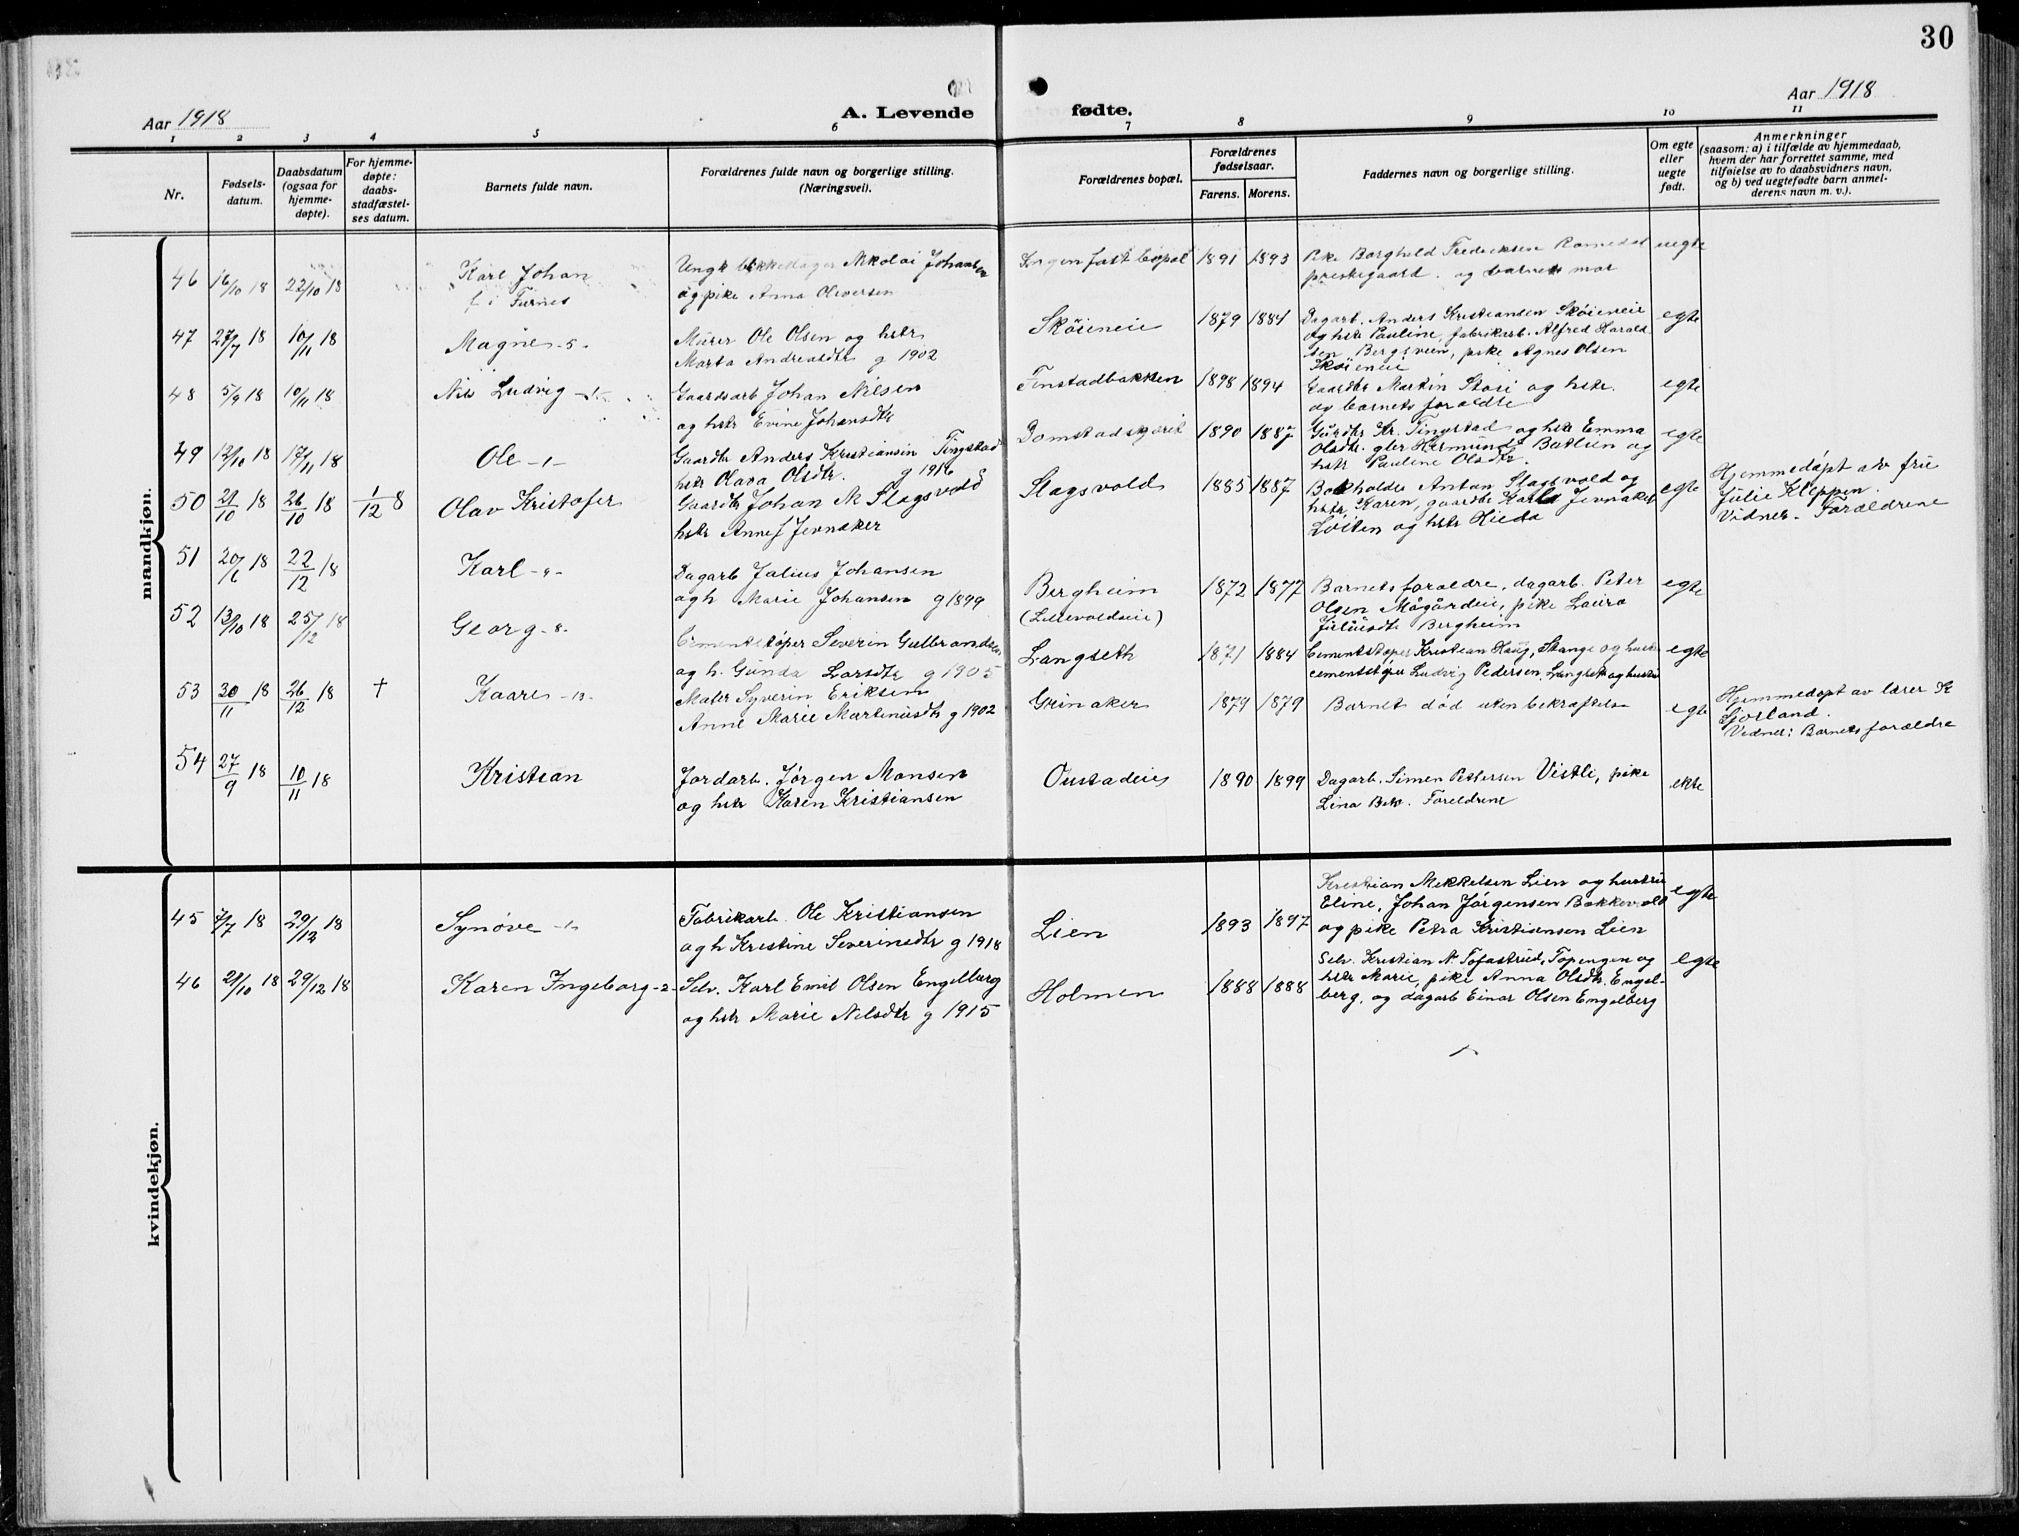 30
Aar 1918
A. Levende
fødte.
Aar 1918
1 2 3 4 5 6 7 8 9 10 11
Nr.
Fødsels-
datum.
Daabsdatum
(ogsaa for
hjemme-
døpte).
For hjemme-
døpte:
daabs-
stadfæstel-
ses datum.
Barnets fulde navn.
Forældrenes fulde navn og borgerlige stilling.
(Næringsvei).
Forældrenes bopæl.
Forældrenes
fødselsaar.
Farens. Morens.
Faddernes navn og borgerlige stilling.
Om egte
eller
uegte
født.
Anmerkninger
(saasom: a) i tilfælde av hjemmedaab,
hvem der har forrettet samme, med
tilføielse av to daabsvidners navn,
og b) ved uegtefødte barn anmel-
derens navn m. v.).
mandkjøn.
46 16/10 18 22/10 18
Karl Johan
f i Furnes
Ungk Nikolai Johansen
og pike Anna Oliversen
Ingen fast bopæl 1891 1893
Pike Borghild Fredriksen Romedal
prestegaard. og barnets mor
uegte
47 27/7 18 10/11 18
Magne -5-
Murer Ole Olsen og hstr
Marta Andreasdtr g 1902
Skøieneie 1879 1884
Dagarb. Anders Kristiansen Skøieneie
og hstr Pauline, fabrikarb. Alfred Harald
sen Bergsveen, pike Agnes Olsen
Skøieneie
egte
48 5/9 18 10/11 18
Nils Ludvig -1-
Gaardsarb Johan Nilsen
og hstr Evine Johansdtr
Finstadbakken 1898 1894
Gaardbr Martin Stori og hstr.
og barnets forældre
egte
49 12/10 18 17/11 18
Ole -1-
Gaardbr Anders Kristiansen Tingstad
hstr Olava Olsdtr. g 1916
1890 1887
Gaardbr Kr. Tingstad og hstr Emma
Olsdtr. Hermund og
hstr Pauline Olsdtr.
egte
50 21/10 18 26/10 18 1/12 8
Olav Kristofer
Gaardbr Johan M Slagsvold
hstr Anne J Jevnaker
Slagsvold 1885 1887
Bokholder Anton Slagsvold og
hstr Karen, gaardbr Karl Jevnaker
Løiten og hstr
egte
Hjemmedøpt av frue
Julie Kleppen.
Vidner. Forældrene
51 20/6 18 22/12 18
Karl -9-
Dagarb Julius Johansen
og h Marie Johansen g 1899
Bergheim
(Lillevoldseie)
1872 1877
Barnets forældre, dagarb. Peter
Olsen Mågårdeie, pike Laura
Juliusdtr Bergheim
egte
52 13/10 18 25/12 18
Georg -8-
Cementstøper Severin Gulbrandsen
og h. Gunda Larsdtr g 1905
Langseth 1871 1884
Cementstøper Kristian Haug, Stange og hustr
cementstøper Ludvig Pedersen, Langseth og hustr
egte
53 30/11 18 26/12 18 †
Kaare -13-
Maler Syverin Eriksen
Anne Marie Martinusdtr g 1902
Grinaker 1879 1879
Barnet død uten bekræftelse
egte
Hjemmedøpt av lærer K
Gjorland.
Vidner: Barnets forældre
54 27/9 18 10/11 18
Kristian
Jordarb. Jørgen Monsen
og hstr Karen Kristiansen
Oustadeie 1890 1899
Dagarb. Simen Pettersen Vistli, pike
Lina Foreldrene
ekte
kvindekjøn.
45 7/7 18 29/12 18
Synøve -1-
Fabrikarb. Ole Kristiansen
og h Kristine Severinsdtr g 1918
Lien 1893 1897
Kristian Mikkelsen Lien og hustru
Eline, Johan Jørgensen Bakkevold
og pike Petra Kristiansen Lien
egte
46 21/10 18 29/12 18
Karen Ingeborg -2-
Selv. Karl Emil Olsen Engelberg
og hstr Marie Nilsdtr g 1915
Holmen 1888 1888
Selv. Kristian N. Tofastrud, Topengen og
hstr Marie, pike Anna Olsdtr. Engel-
berg, og dagarb Einar Olsen Engelberg
egte